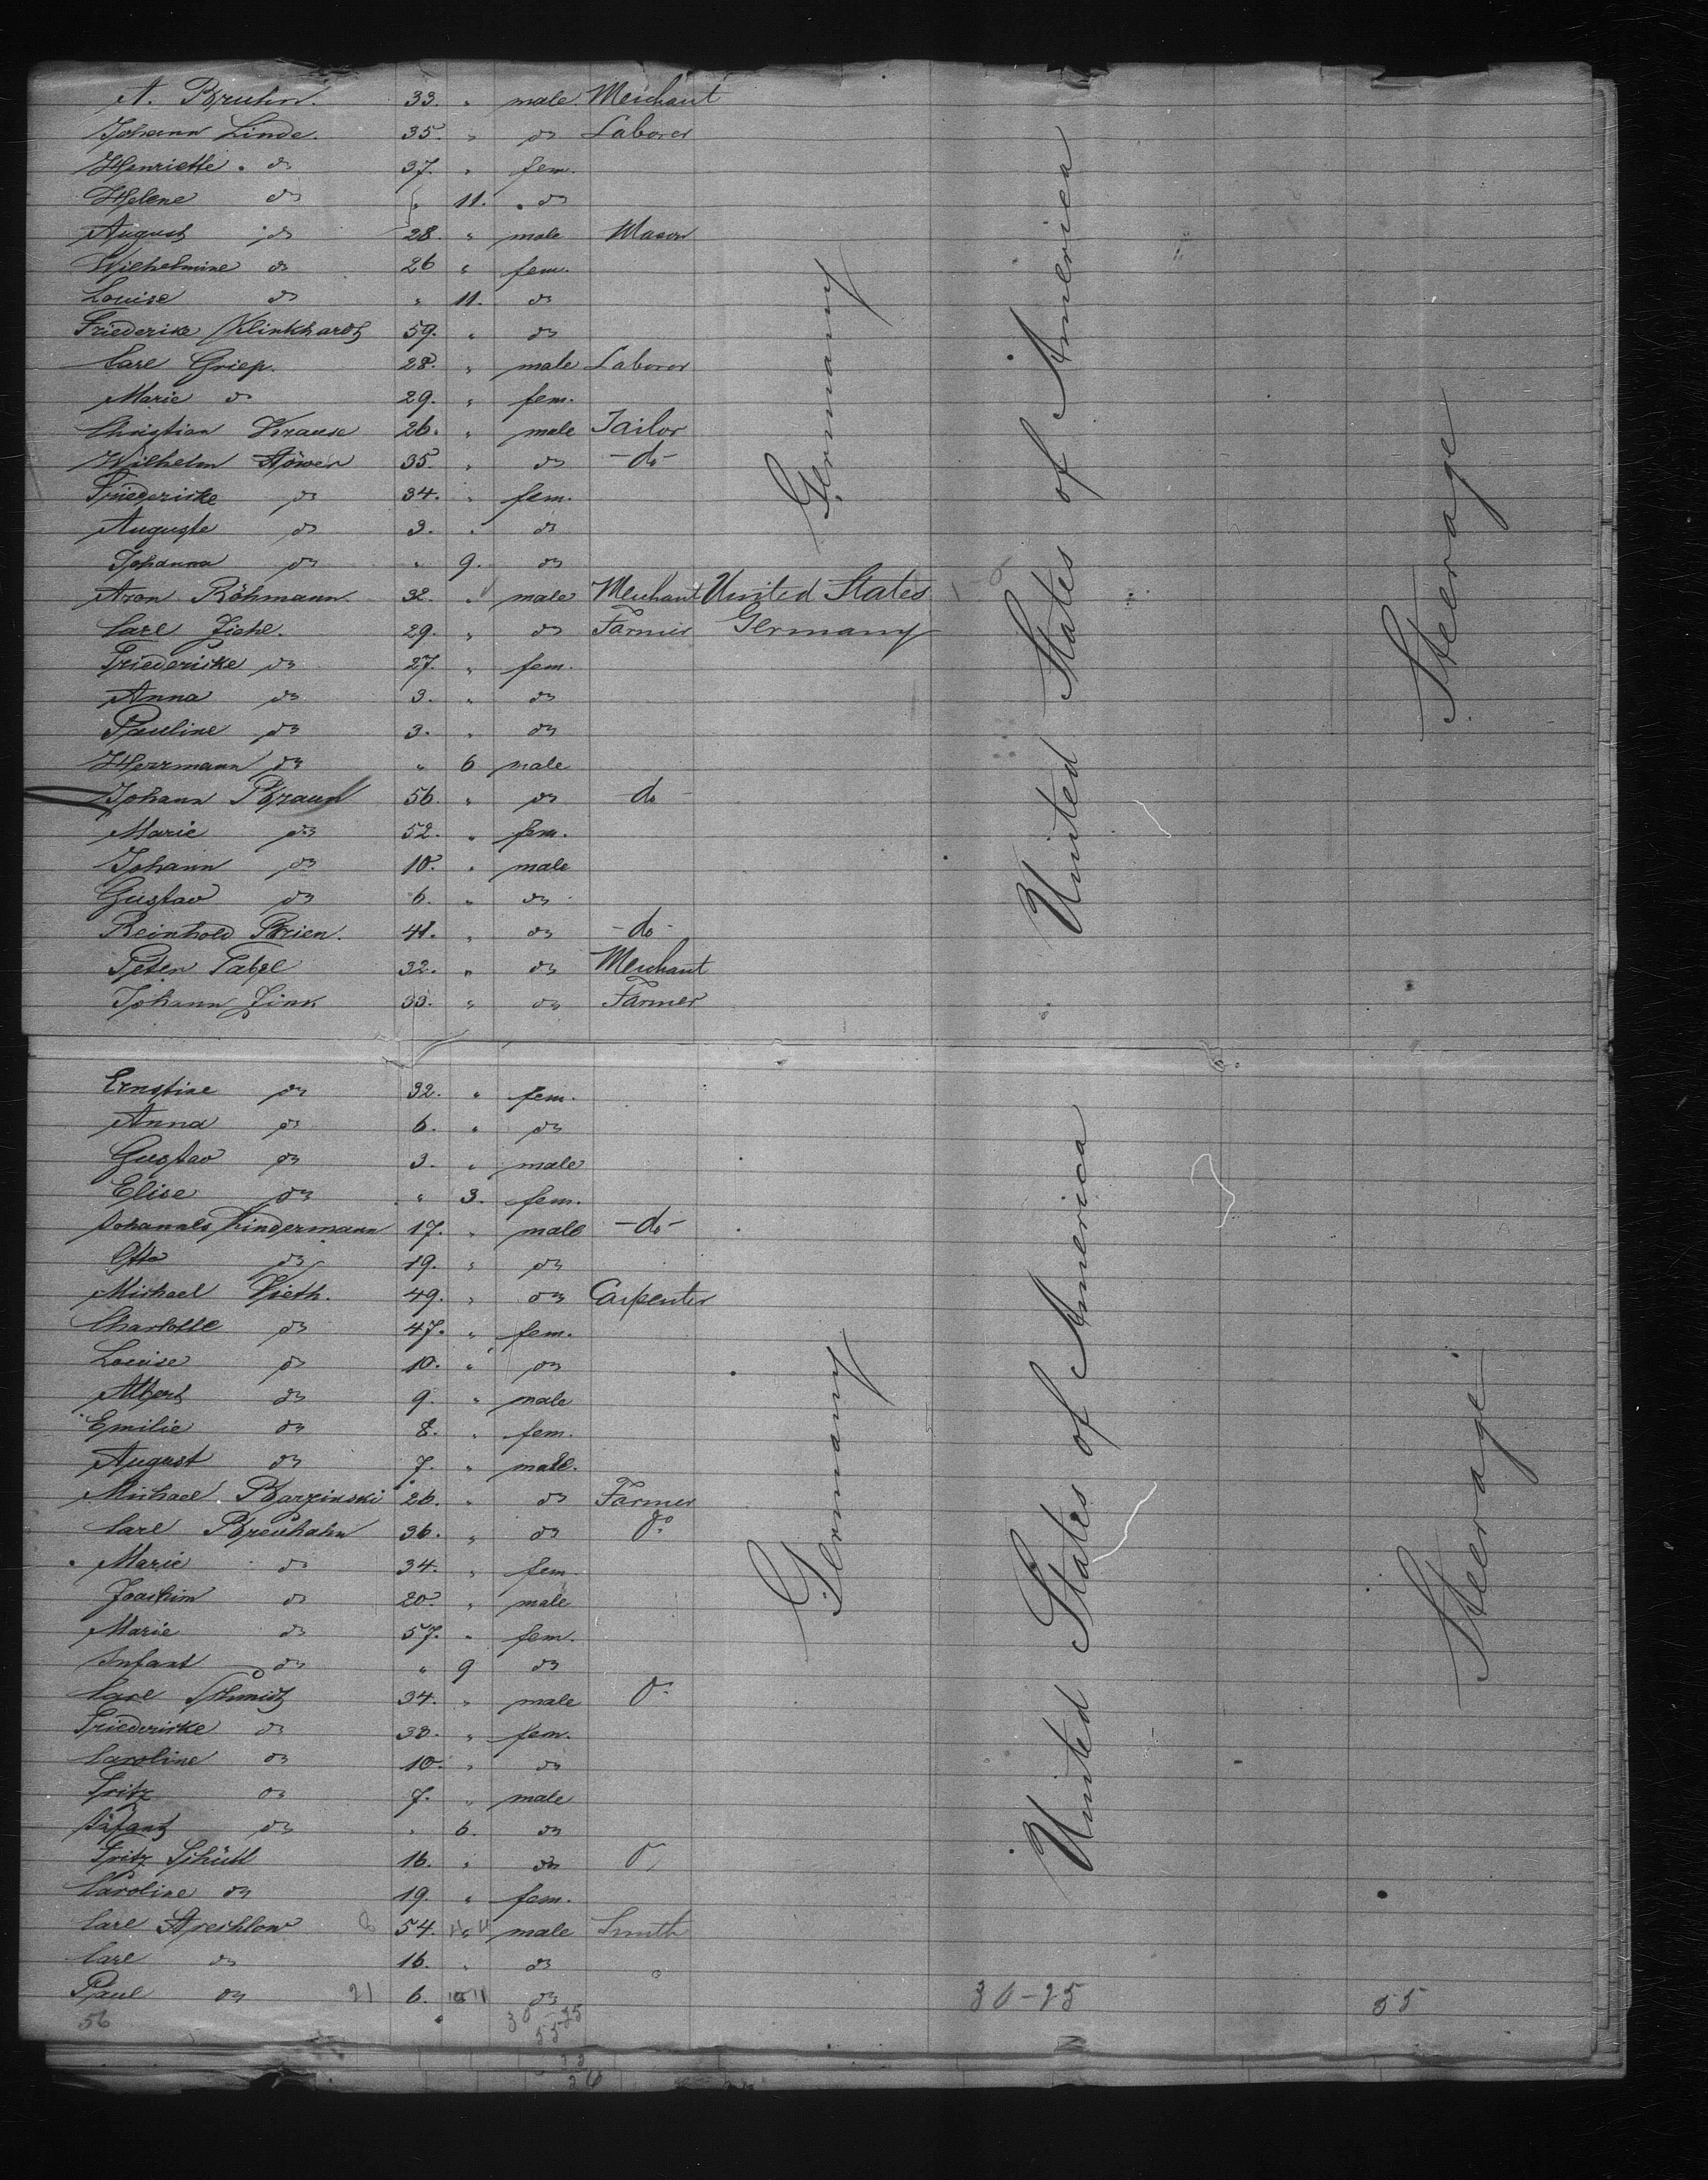 A. Bruhn. 33. " male. Merchant
Johann Linde. 35. " do Laborer
Henriette. do 37. " fem.
Helene do " 11. do
August do 28. " male Mason
Wilhelmine do 26 " fem.
Louise do " 11. do
Friederike Klinkhardt 59. " do
Carl Griep. 28. " male Laborer
Marie do 29. " fem.
Christian Krause 26. " male Tailor
Wilhelm 35. " do -do-
Friedericke do 34. " fem.
Auguste do 3. " do
Johanna do " 9. do
Aron Röhmann 32. " male Merchant United States
Carl Ziehl. 29. " do Farmer Germany
Friedericke do 27. " fem.
Anna do 3. " do
Pauline do 3. " do
Herrmann do " 6 male
Johann Braun 56. " do do
Marie do 52. " fem.
Johann do 10. " male
Gustav do 6. " do
Reinhold Brien. 41. " do -do-
Peter 32. " do Merchant
Johann Zink 33. " do Farmer
Germany
United States of America
Steerage
Ernstine do 32. " fem.
Anna do 6. " do
Gustav do 3. " male
Elise do " 3. fem.
Johannes Lindermann 17. " male -do-
Otto do 19. " do
Michael Vieth. 49. " do Carpenter
Charlotte do 47. " fem.
Louise do 10. " do
Albert do 9. " male
Emilie do 8. " fem.
August do 7. " male.
Michael Barzinski 26. " do Farmer
Carl Breuhahn 36. " do do
Marie do 34. " fem.
Joachim do 20. " male
Marie do 57. " fem.
Infant do " 9 do
Carl Schmidt 34. " male do
Friedericke do 38. " fem.
Caroline do 10. " do
Fritz do 7. " male
Infant do " 6. do
Fritz Schütt 16. " do do
Caroline do 19. " fem.
Carl 54. " male Smith
Carl do 16. " do
Paul do 21 6. do 30-25 55
56 30 25
55
Germany
United States of America
Steerage